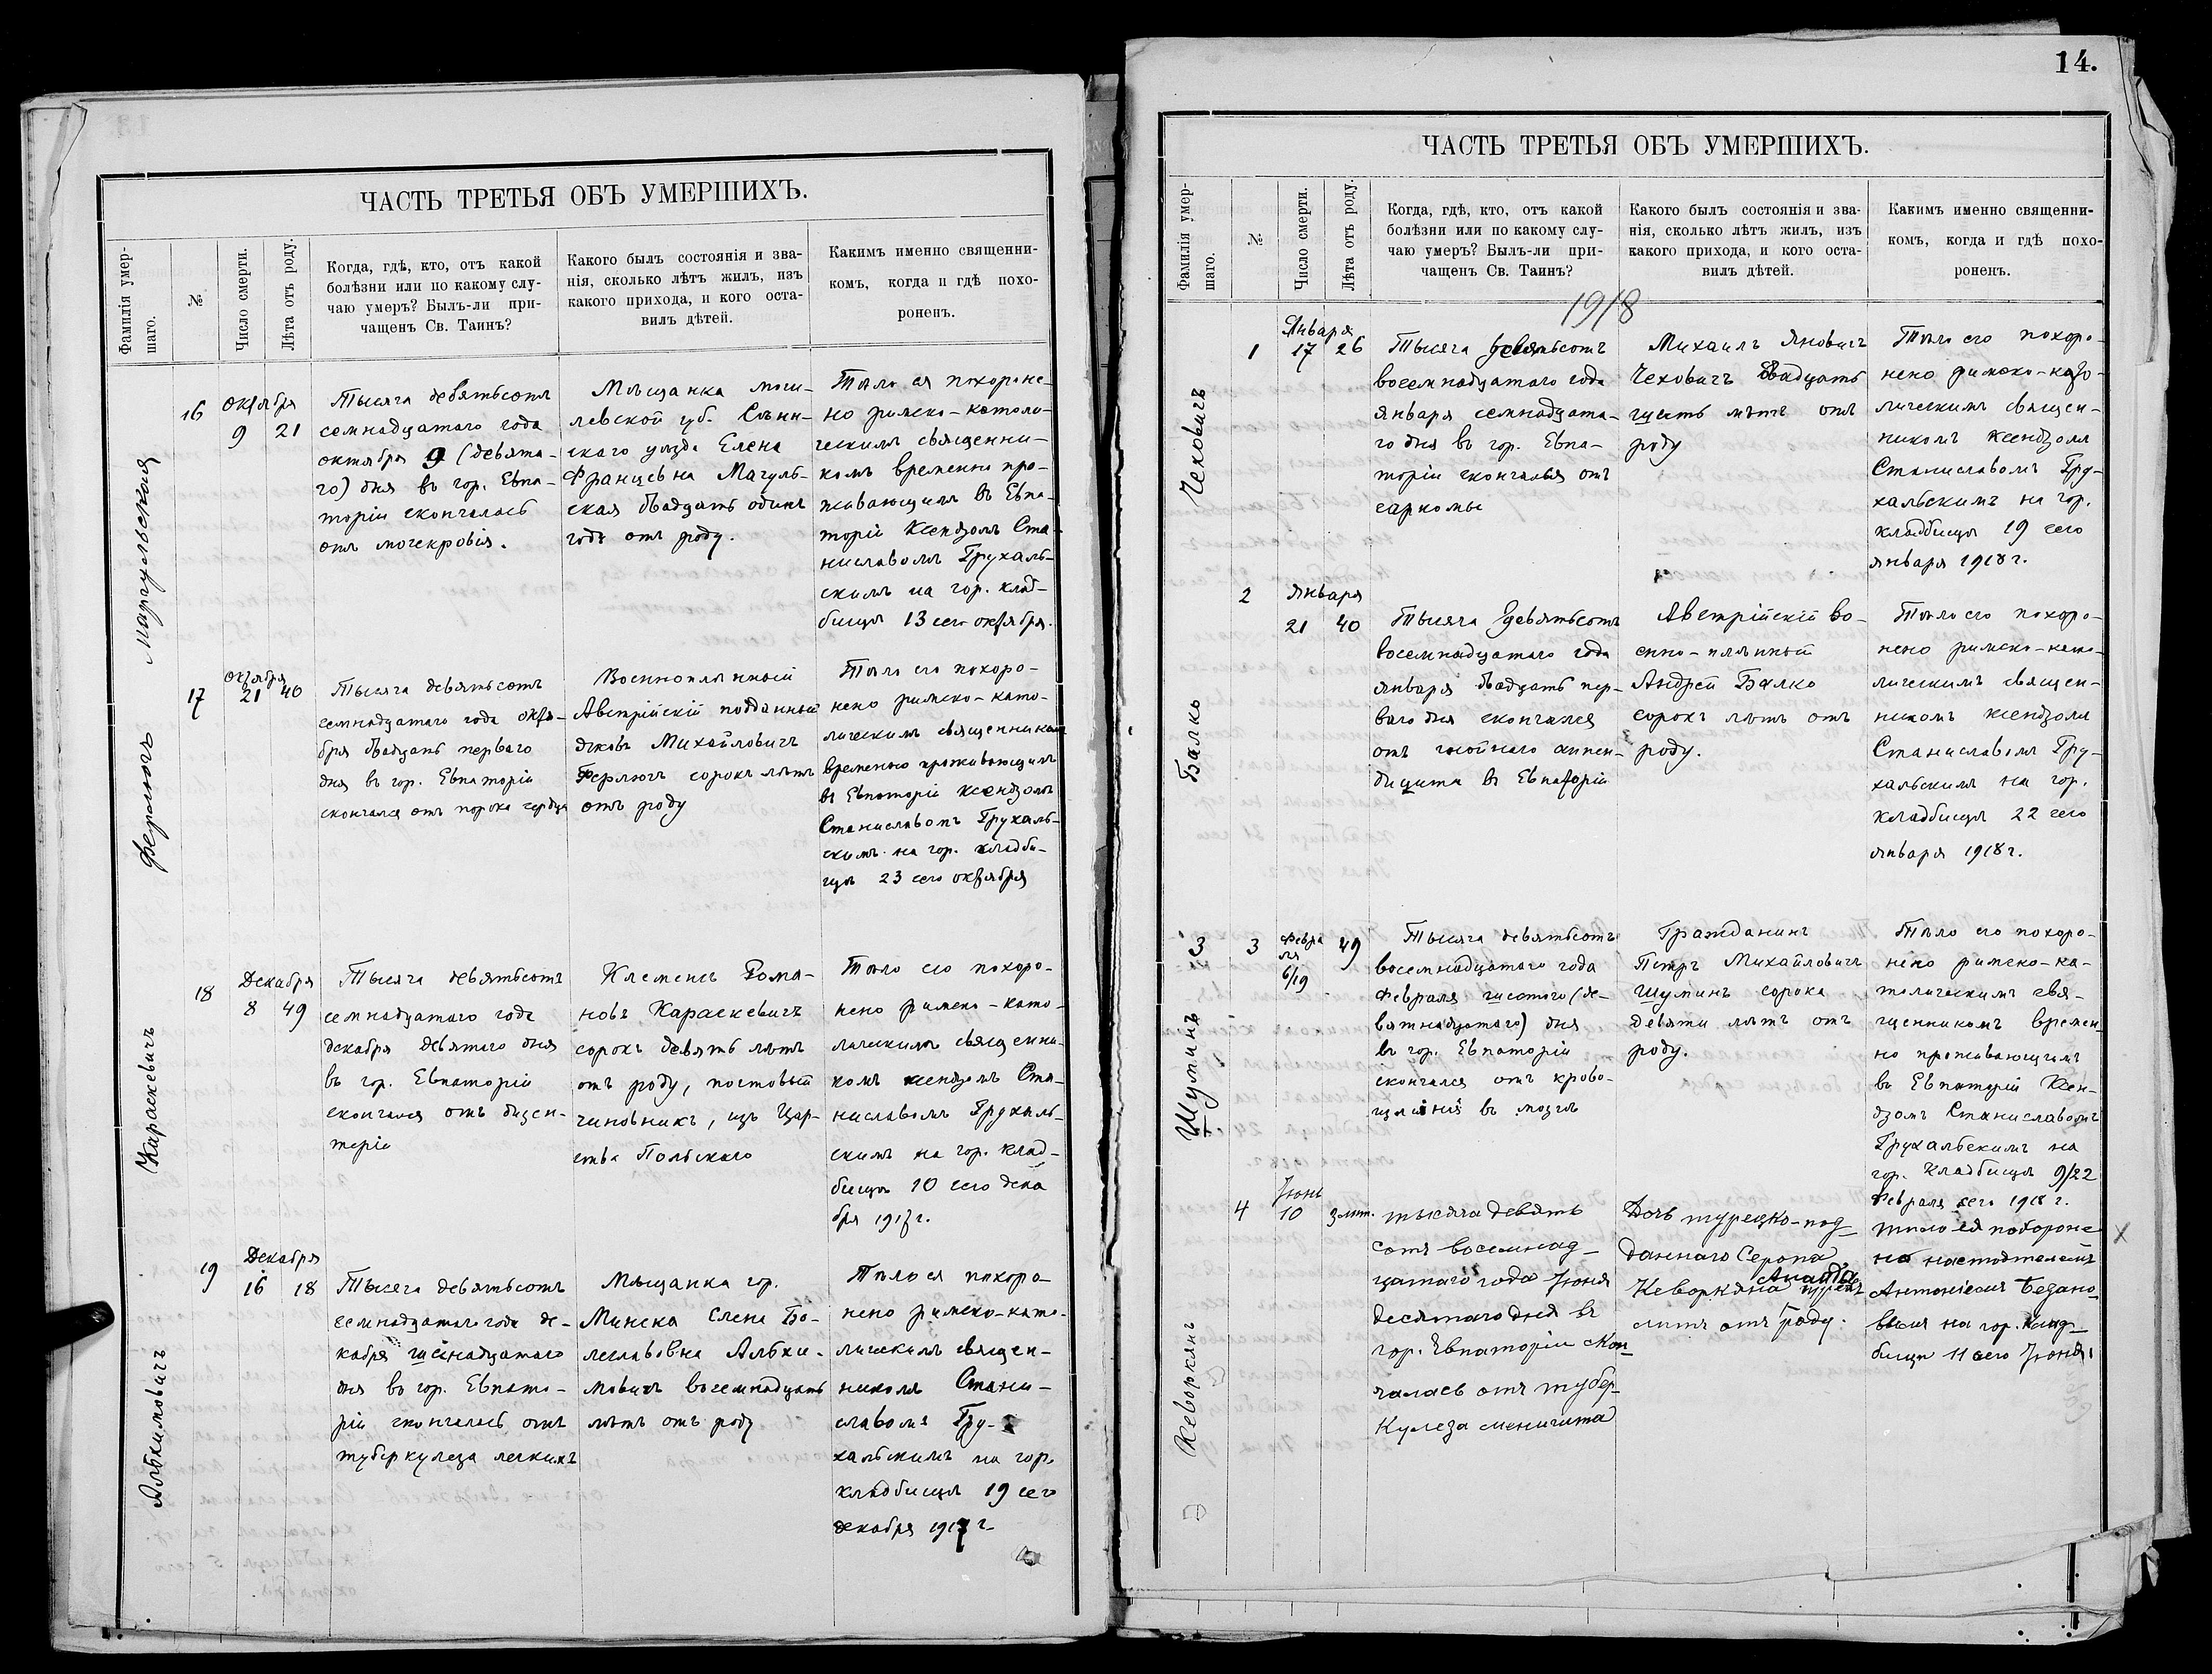 ЧАСТЬ ТРЕТЬЯ ОБЪ УМЕРШИХЪ.
Фамилія умер-
шаго.
№
Число смерти.
Лѣта отъ роду.
Когда, гдѣ, кто, отъ какой
болѣзни или по какому слу-
чаю умеръ? Былъ-ли при-
чащенъ Св. Таинъ?
Какого былъ состоянія и зва-
нія, сколько лѣтъ жилъ, изъ
какого прихода, и кого оста-
вилъ дѣтей.
Какимъ именно священни-
комъ, когда и гдѣ похо-
роненъ.
Магульская
16
октября
9 21
Тысяча девятьсотъ
семнадцатаго года
октября 9 (девята-
го) дня въ гор. Евпа-
торіи скончалась
отъ мочекровія.
Мѣщанка моги-
левской губ. Сѣнн-
скаго уѣзда Елена
Францевна Магуль-
ская двадцать одинъ
годъ отъ роду.
Тѣло ея похороне-
но римско-католи-
ческимъ священни-
комъ временно про-
живающимъ въ Евпа-
торіи Ксендзомъ Ста-
ниславомъ Грухаль-
скимъ на гор. клад-
бищѣ 13 сего октября.
Ферлючъ
17
октября
21 40
Тысяча девятьсотъ
семнадцатаго года октя-
бря двадцать перваго
дня въ гор. Евпаторіи
скончался отъ порока сердца
Военноплѣнный
Австрійскій подданный
Яковъ Михайловичъ
Ферлючъ сорокъ лѣтъ
отъ роду
Тѣло его похоро-
нено римско-като-
лическимъ священникомъ
временно проживающимъ
въ Евпаторіи ксендзомъ
Станиславомъ Грухаль-
скимъ на гор. кладби-
щѣ 23 сего октября
Караскевичъ
18
Декабря
8 49
Тысяча девятьсотъ
семнадцатаго года
декабря девятого дня
въ гор. Евпаторіи
скончался отъ дизен-
теріи
Клеменсъ Рома-
новъ Караскевичъ
сорокъ девять лѣтъ
отъ роду, почтовый
чиновникъ, изъ Цар-
ства Польскаго
Тѣло его похоро-
нено римско-като-
лическимъ священни-
комъ ксендзомъ Ста-
ниславомъ Грухаль-
скимъ на гор. клад-
бищѣ 10 сего дека
бря 1917 г.
Альхимовичъ
19
Декабря
16 18
Тысяча девятьсотъ
семнадцатаго года де-
кабря шестнадцатаго
дня въ гор. Евпато-
ріи скончалась отъ
туберкулеза легкихъ
Мѣщанка гор.
Минска Елена Бо-
леславовна Альхи-
мовичъ восемнадцать
лѣтъ отъ роду
Тѣло ея похоро-
нено римско-като-
лическимъ священ-
никомъ Стани-
славомъ Гру-
хальскимъ на гор.
кладбищѣ 19 сего
декабря 1917 г.
14.
ЧАСТЬ ТРЕТЬЯ ОБЪ УМЕРШИХЪ.
Фамилія умер-
шаго.
№
Число смерти.
Лѣта отъ роду.
Когда, гдѣ, кто, отъ какой
болѣзни или по какому слу-
чаю умеръ? Былъ-ли при-
чащенъ Св. Таинъ?
Какого былъ состоянія и зва-
нія, сколько лѣтъ жилъ, изъ
какого прихода, и кого оста-
вилъ дѣтей.
Какимъ именно священни-
комъ, когда и гдѣ похо-
роненъ.
1918
Чеховичъ
1
Января
17 26
Тысяча девятьсотъ
восемнадцатаго года
января семнадцата-
го дня въ гор. Евпа-
торіи скончался отъ
саркомы
Михаилъ Яновичъ
Чеховичъ двадцать
шесть лѣтъ отъ
роду
Тѣло его похоро-
нено римско-като-
лическимъ священ-
никомъ ксендзомъ
Станиславомъ Гру-
хальскимъ на гор.
кладбищѣ 19 сего
января 1918 г.
Балко
2
Января
21 40
Тысяча девятьсотъ
восемнадцатаго года
января двадцать пер-
ваго дня скончался
отъ гнойнаго аппен-
дицита въ Евпаторіи
Австрійскій во-
енно-плѣнный
Андрей Балко
сорокъ лѣтъ отъ
роду.
Тѣло его похоро-
нено римско-като-
лическимъ священ-
никомъ ксендзомъ
Станиславомъ Гру-
хальскимъ на гор.
кладбищѣ 22 сего
января 1918 г.
3
Шуминъ
3
Февра
ля
6/19
49
Тысяча девятьсотъ
восемнадцатаго года
Февраля шестого (де-
вятнадцатаго) дня
въ гор. Евпаторіи
скончался отъ крово-
изліянія въ мозгъ
Гражданинъ
Петръ Михайловичъ
Шуминъ сорока
девяти лѣтъ отъ
роду.
Тѣло его похоро-
нено римско-ка-
толическимъ свя-
щенникомъ времен-
но проживающимъ
въ Евпаторіи Ксен-
дзомъ Станиславомъ
Грухальскимъ на
гор. кладбищѣ 9/22
Февраля сего 1918 г.
Кеворкянъ
4
Іюнь
10 3 лѣт.
тысяча девять
сотъ восемнад-
цатаго года Іюня
десятаго дня въ
гор. Евпаторіи скон-
чалась отъ тубер-
кулеза менингита
Дочь турецко-под-
даннаго Серопа
Кеворкяна
лѣтъ отъ роду.
тѣло ея похороне
но настоятелемъ
Антоніемъ
на гор. клад-
бищѣ 11 сего Іюня.